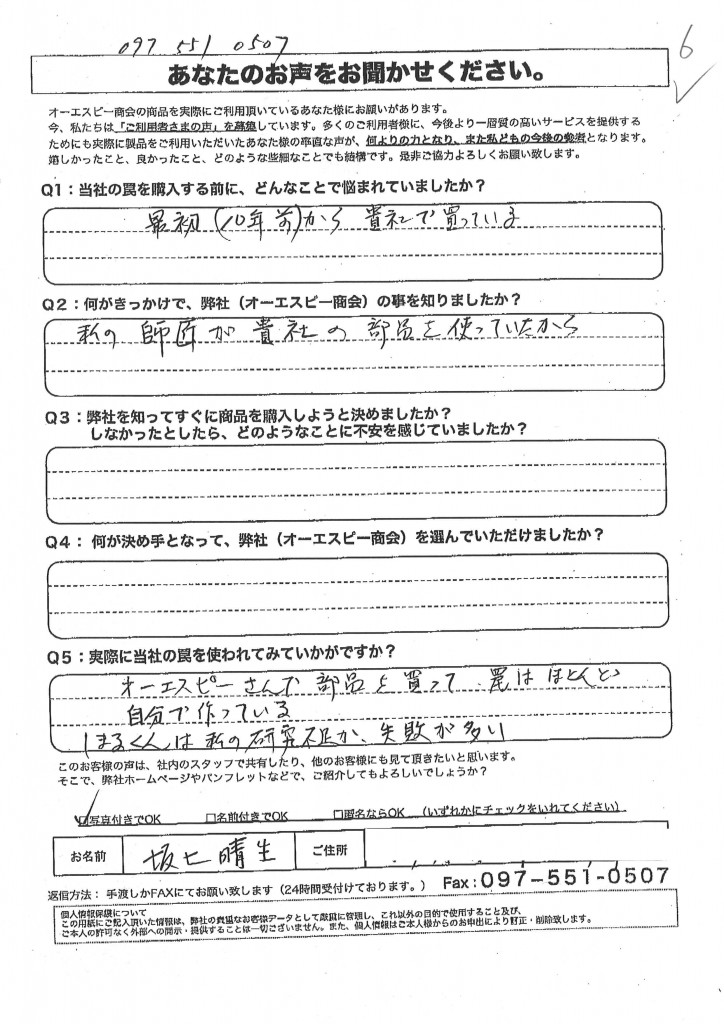 097 551 0507
6
あなたのお声をお聞かせください。
オーエスピー商会の商品を実際にご利用頂いているあなた様にお願いがあります。
今、私たちは「ご利用者さまの声」を募集しています。多くのご利用者様に、今後より一層質の高いサービスを提供する
ためにも実際に製品をご利用いただいたあなた様の率直な声が、何よりの力となり、また私どもの今後の励みとなります。
嬉しかったこと、良かったこと、どのような些細なことでも結構です。是非ご協力よろしくお願い致します。
Q1：当社の罠を購入する前に、どんなことで悩まれていましたか？
最初(10年前)から 貴社で買っている
Q2：何がきっかけで、弊社（オーエスピー商会）の事を知りましたか？
私の 師匠が 貴社の 部品を使っていたから
Q3：弊社を知ってすぐに商品を購入しようと決めましたか？
しなかったとしたら、どのようなことに不安を感じていましたか？
Q4： 何が決め手となって、弊社（オーエスピー商会）を選んでいただけましたか？
Q5：実際に当社の罠を使われてみていかがですか？
オーエスピーさんで 部品を買って、罠はほとんど
自分で作っている
しまるくんは私の研究不足か、失敗が多い
このお客様の声は、社内のスタッフで共有したり、他のお客様にも見て頂きたいと思います。
そこで、弊社ホームページやパンフレットなどで、ご紹介してもよろしいでしょうか？
☑写真付きでOK □名前付きでOK □匿名ならOK （いずれかにチェックをいれてください）
お名前 晴生 ご住所
返信方法： 手渡しかFAXにてお願い致します（24時間受付けております。） Fax：097-551-0507
個人情報保護について
この用紙にご記入頂いた情報は、弊社の貴重なお客様データとして厳重に管理し、これ以外の目的で使用すること及び、
ご本人の許可なく外部への開示・提供することは一切ございません。また、個人情報はご本人様からのお申出により訂正・削除致します。